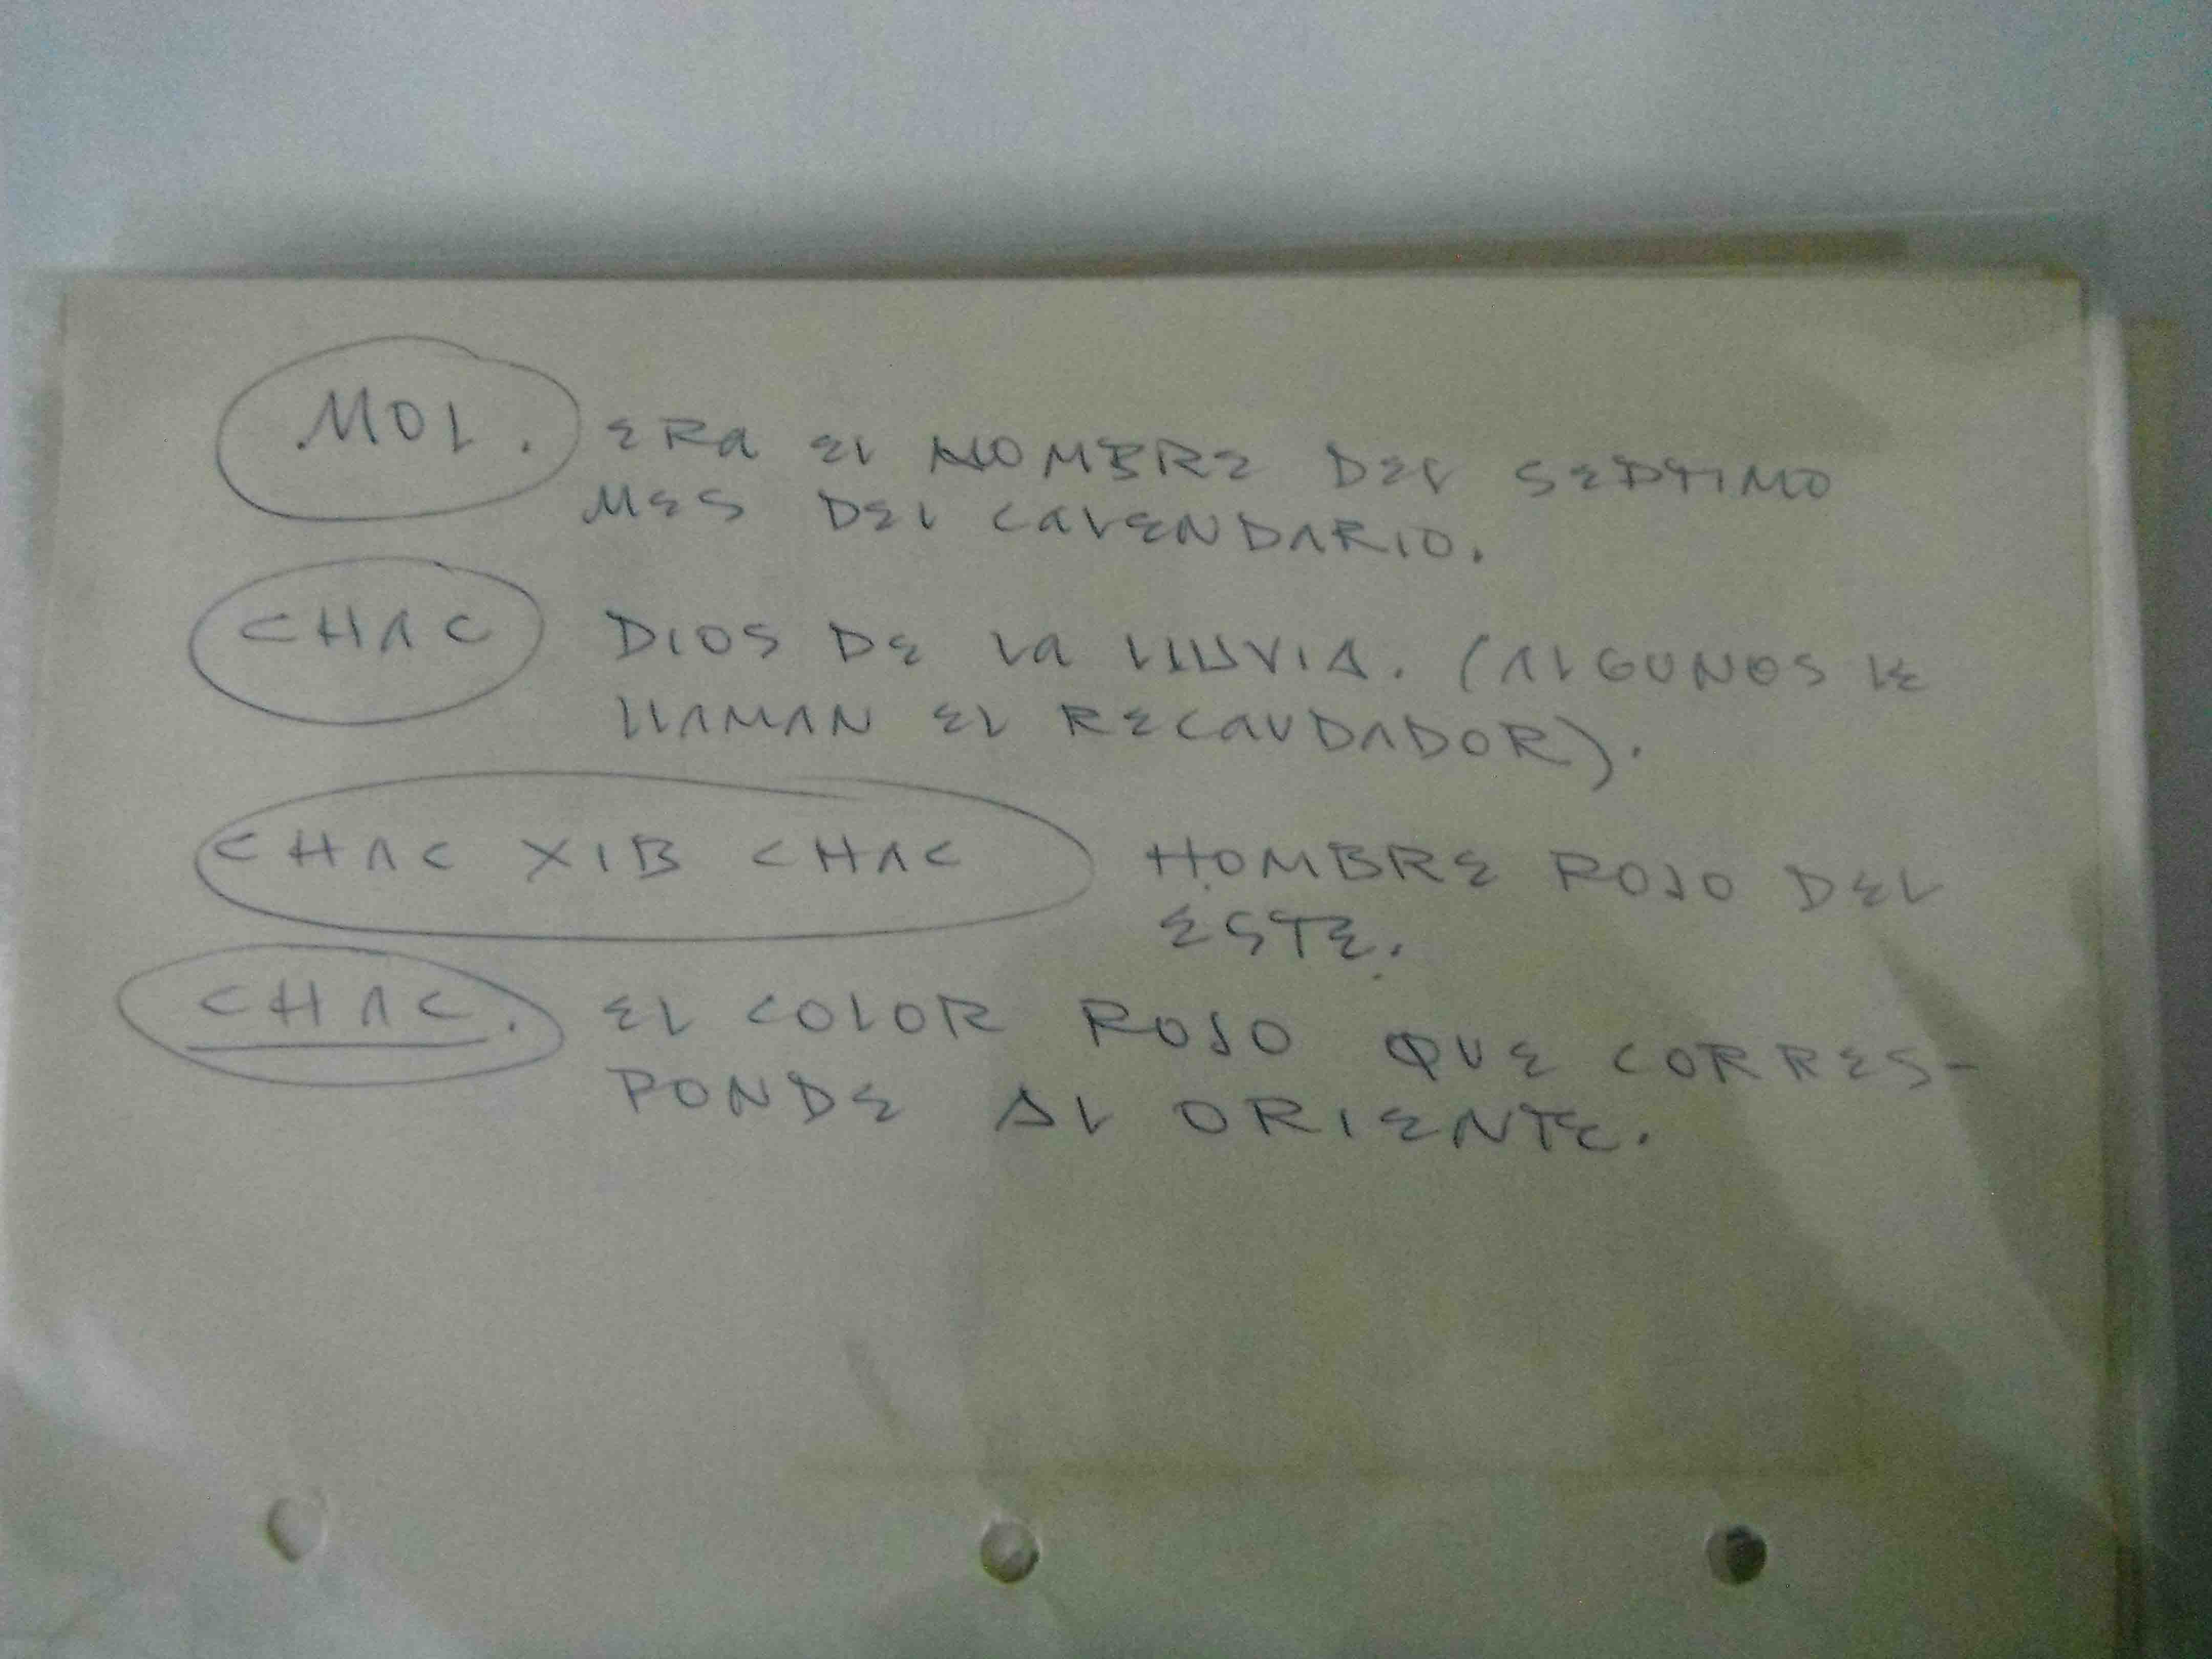 MOL. ERa EL NOMBRE DEL SEPTIMO
MES DEL CaLENDARIO.
CHAC DIOS DE La LLUVIA. (ALGUNOS LE
LLAMAN EL RECaUDADOR).
CHAC XIB CHAC HOMBRE ROJO DEL
ESTE.
CHAC. EL COLOR ROJO QUE CORRES-
PONDE AL ORIENTE.